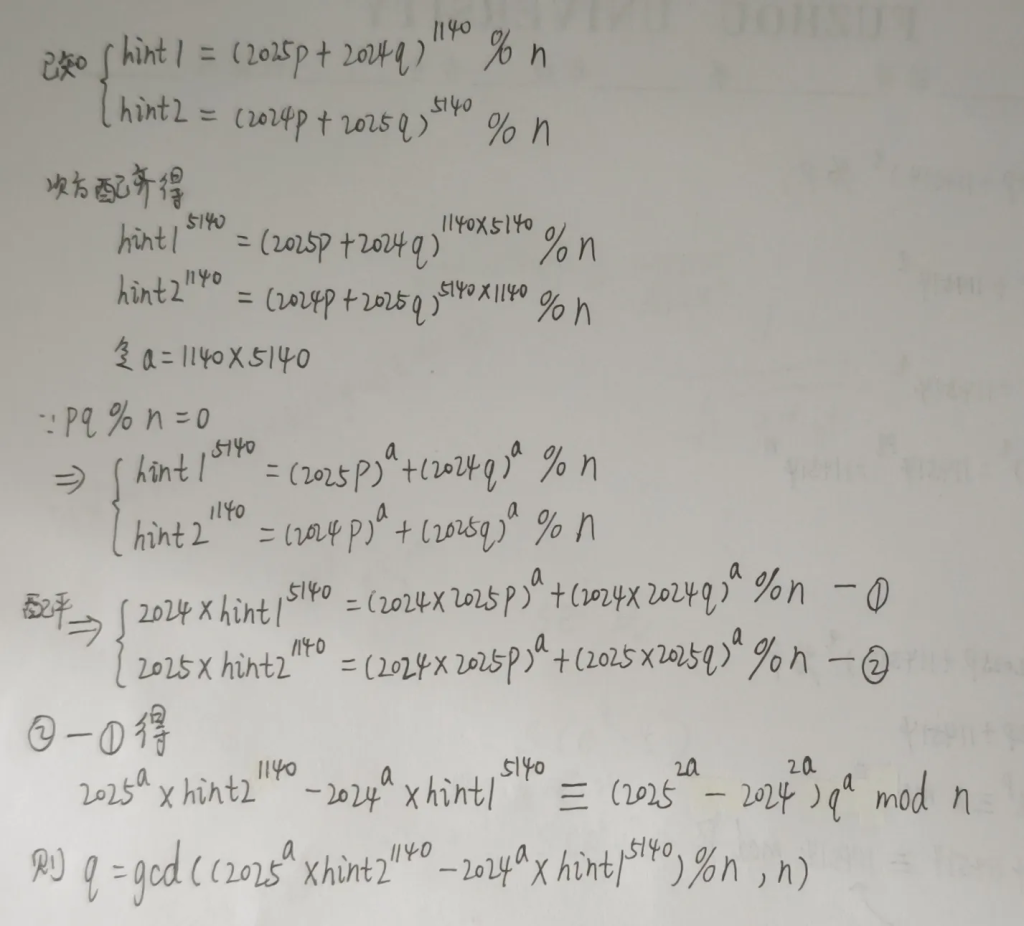 FUZHOU UNIVERSITY
已知 { hint1 = (2025p + 2024q)^1140 % n
hint2 = (2024p + 2025q)^5140 % n
次方配齐得
hint1^5140 = (2025p + 2024q)^1140×5140 % n
hint2^1140 = (2024p + 2025q)^5140×1140 % n
令 a = 1140×5140
∵ pq % n = 0
⇒ { hint1^5140 = (2025p)^a + (2024q)^a % n
hint2^1140 = (2024p)^a + (2025q)^a % n
配平⇒ { 2024×hint1^5140 = (2024×2025p)^a + (2024×2024q)^a % n — ①
2025×hint2^1140 = (2024×2025p)^a + (2025×2025q)^a % n — ②
② — ① 得
2025^a × hint2^1140 − 2024^a × hint1^5140 ≡ (2025^2a − 2024^2a) q^a mod n
则 q = gcd((2025^a × hint2^1140 − 2024^a × hint1^5140) % n , n)